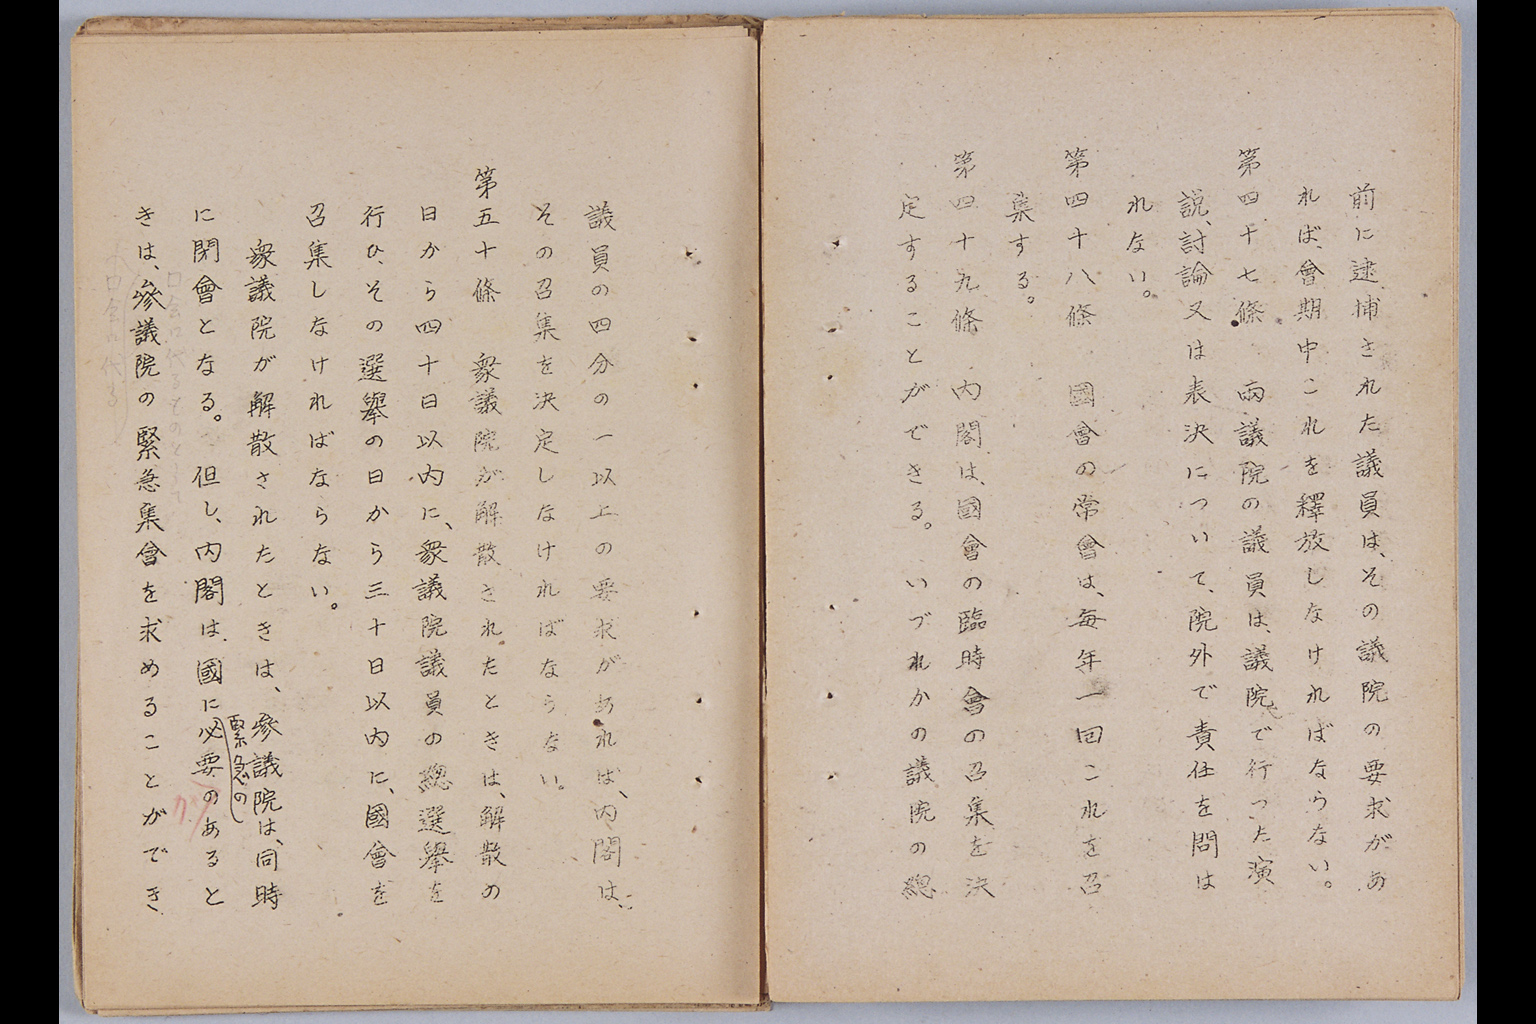 前に逮捕された議員は、その議院の要求があ
れば、會期中これを釋放しなければならない。
第四十七條　兩議院の議員は、議院で行つた演
説、討論又は表決について、院外で責任を問は
れない。
第四十八條　國會の常會は、毎年一回これを召
集する。
第四十九條　内閣は、國會の臨時會の召集を決
定することができる。いづれかの議院の總
議員の四分の一以上の要求があれば、内閣は、
その召集を決定しなければならない。
第五十條　衆議院が解散されたときは、解散の
日から四十日以内に、衆議院議員の總選擧を
行ひ、その選擧の日から三十日以内に、國會を
召集しなければならない。
衆議院が解散されたときは、參議院は、同時
に閉會となる。但し、内閣は、國に必要のあると
緊急の
きは、參議院の緊急集會を求めることができ